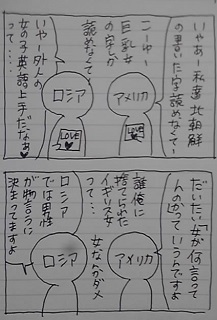 いやあー私達北朝鮮
の書いた字読めなくて
こーゆー
巨乳女
の字しか
読めなくて、
いやー外人の
女の子英語上手だなぁ
って・・・・
アメリカ
ロシア
LOVE
LOVE
だいたい女が何言って
んのかっていうんですよ
誰俺に
捨てられた
イギリス女
って…
女なんかダメ
ロシア
では男性
が物言うに
決まってますよ
アメリカ
ロシア